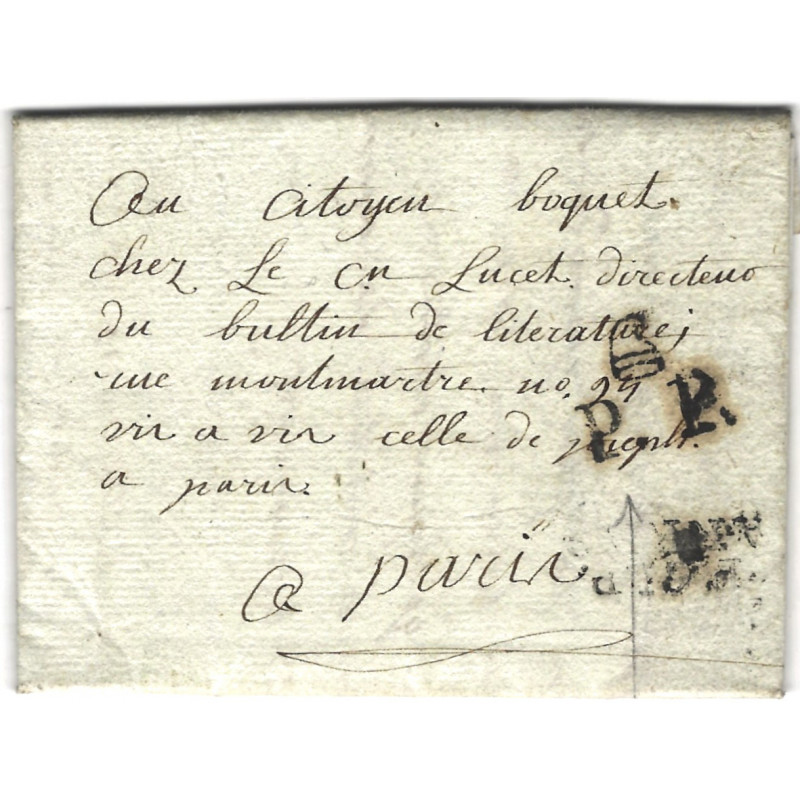 Au citoyen boquet.
chez Le cn Lucet. directeur
du bultin de literature;
rue montmartre. no. 24
vis a vis celle de joseph.
a paris.
P. P.
a paris